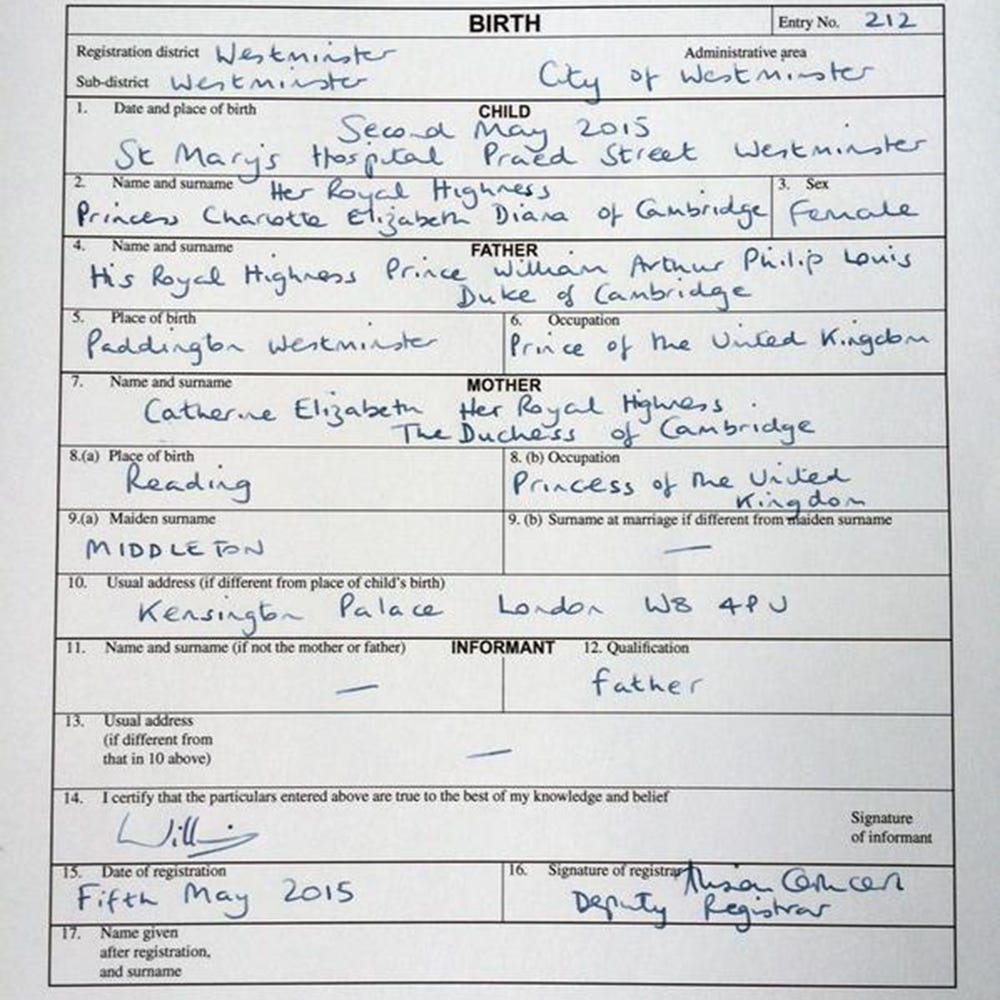 BIRTH
Entry No. 212
Registration district Westminster
Administrative area
Sub-district Westminster
City of Westminster
1. Date and place of birth
CHILD
Second May 2015
St Mary's Hospital Praed Street Westminster
2. Name and surname Her Royal Highness
Princess Charlotte Elizabeth Diana of Cambridge
3. Sex
Female
4. Name and surname
FATHER
His Royal Highness Prince William Arthur Philip Louis
Duke of Cambridge
5. Place of birth
Paddington Westminster
6. Occupation
Prince of the United Kingdom
7. Name and surname
MOTHER
Catherine Elizabeth Her Royal Highness
The Duchess of Cambridge
8.(a) Place of birth
Reading
8. (b) Occupation
Princess of the United
Kingdom
9.(a) Maiden surname
MIDDLETON
9. (b) Surname at marriage if different from maiden surname
—
10. Usual address (if different from place of child's birth)
Kensington Palace London W8 4PU
11. Name and surname (if not the mother or father)
INFORMANT
—
12. Qualification
father
13. Usual address
(if different from
that in 10 above)
—
14. I certify that the particulars entered above are true to the best of my knowledge and belief
Signature
of informant
15. Date of registration
Fifth May 2015
16. Signature of registrar
Deputy Registrar
17. Name given
after registration,
and surname